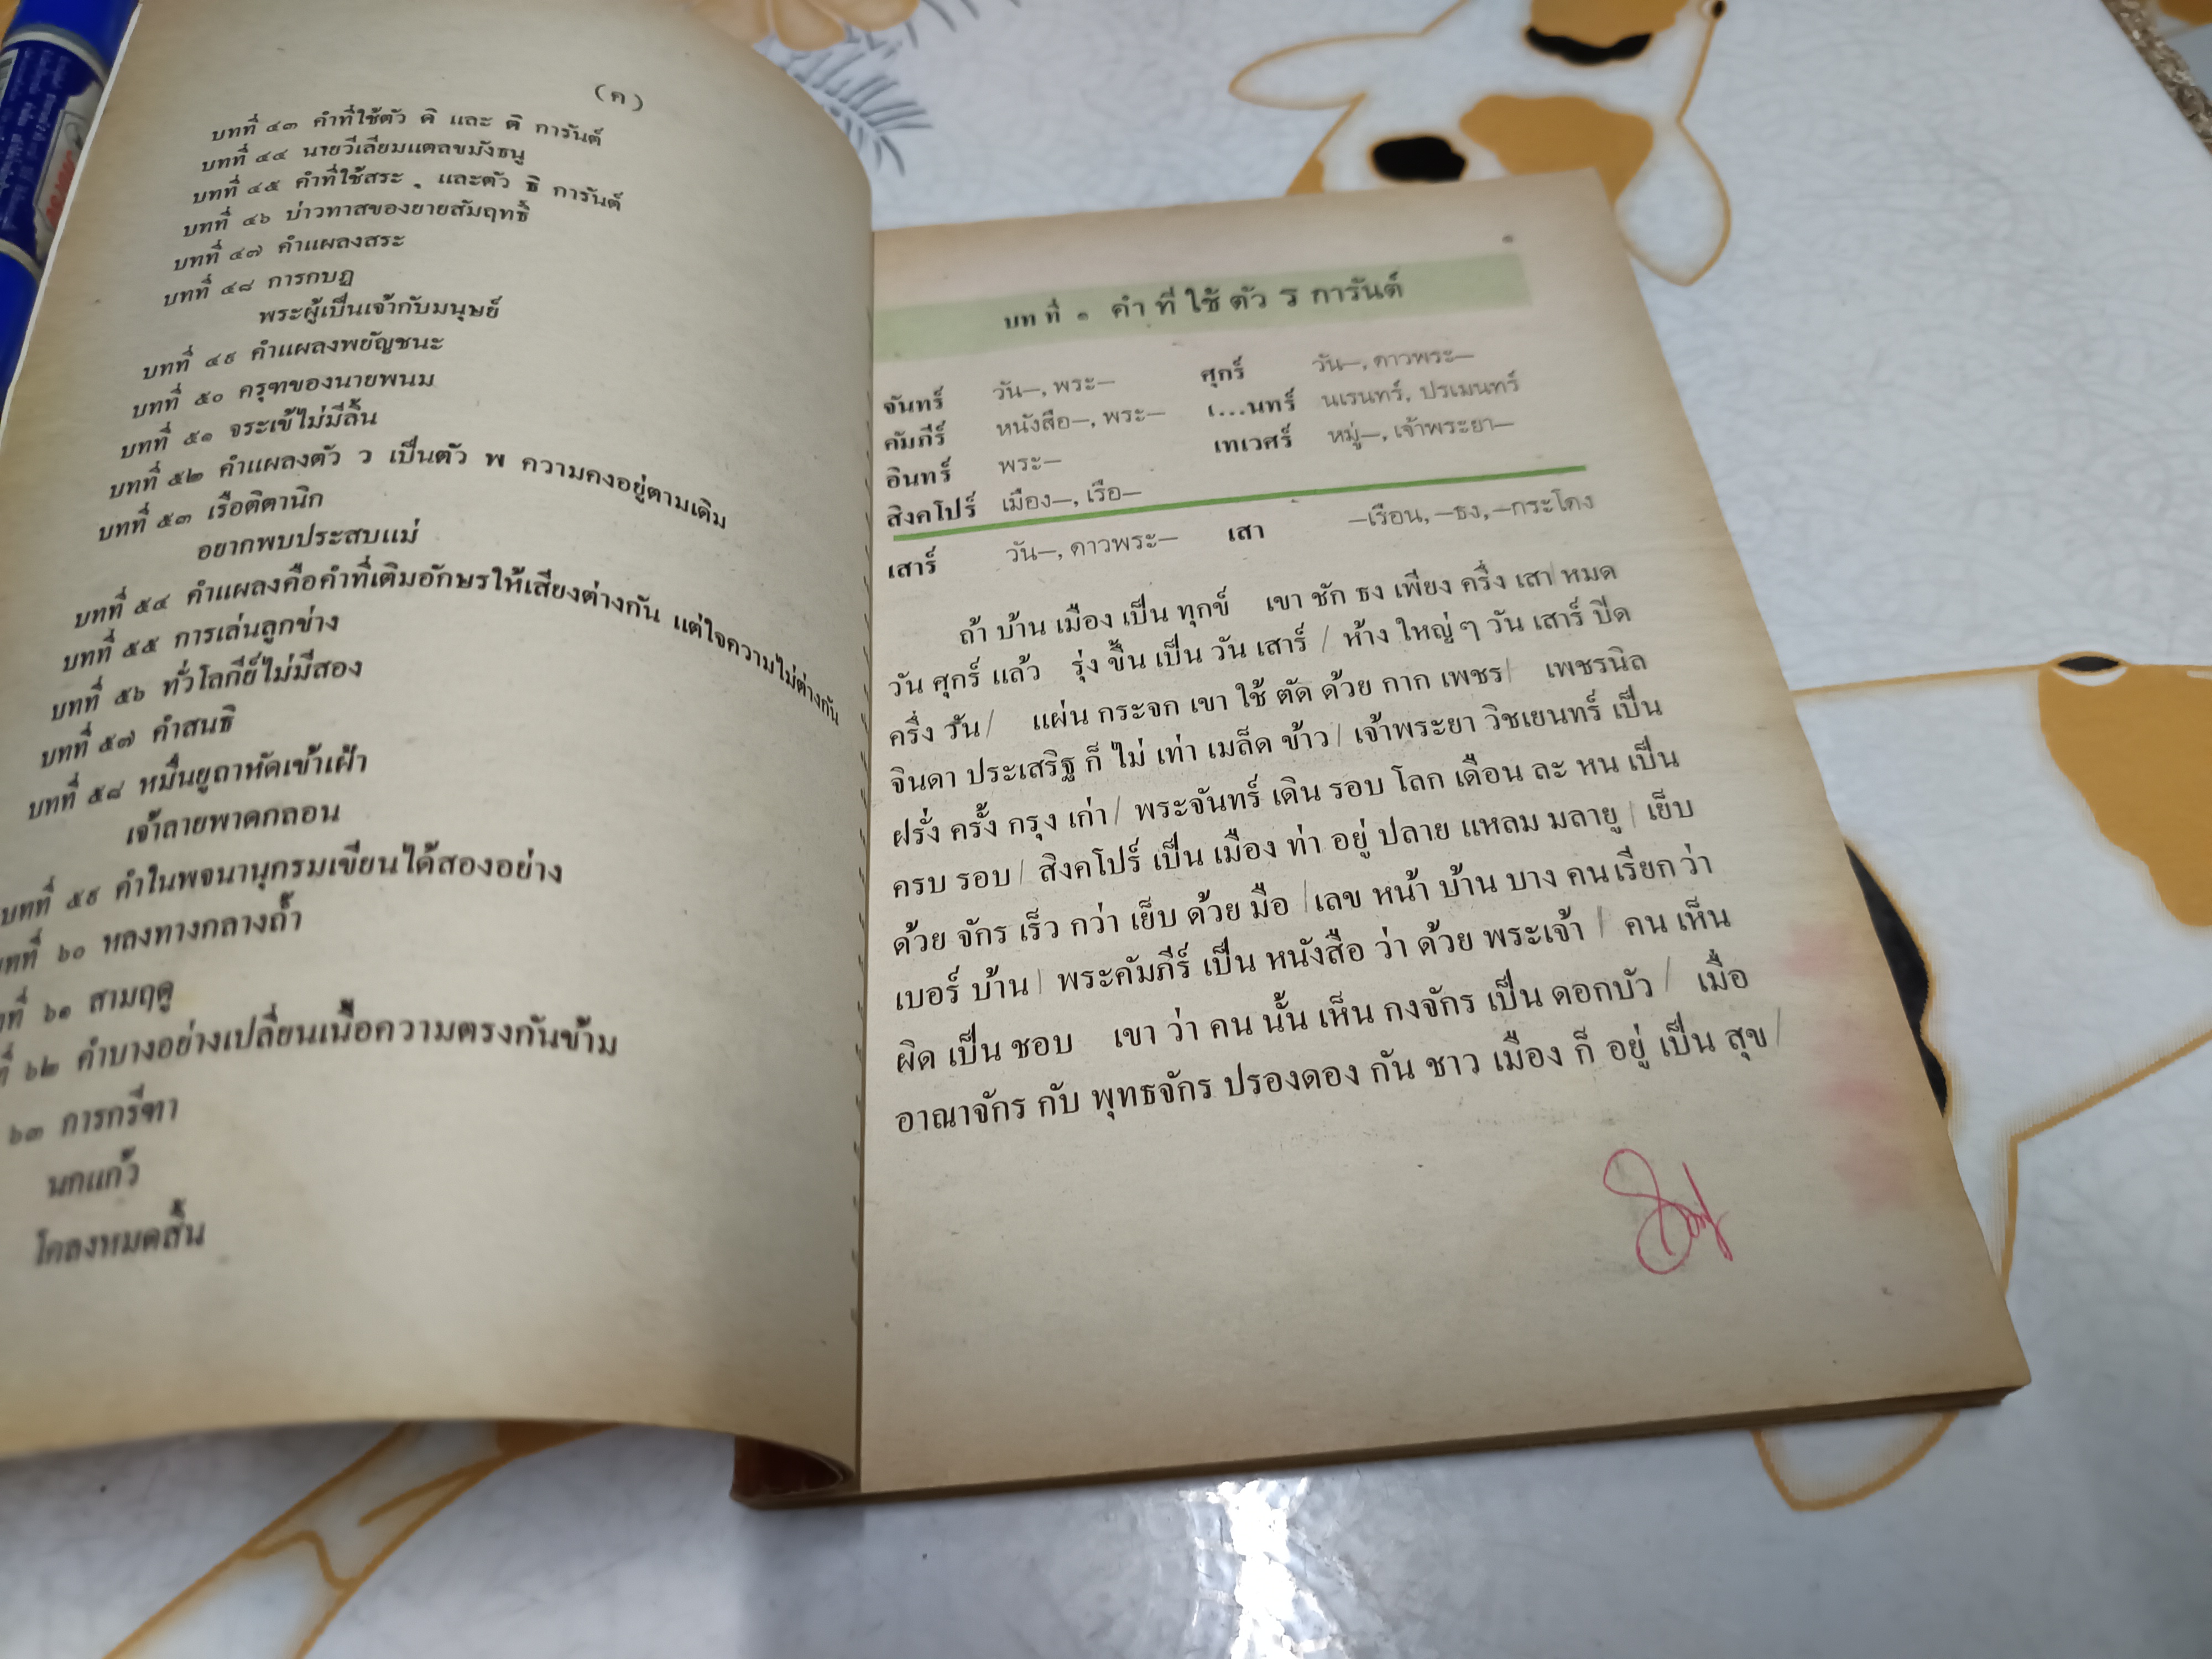 (ค)
บทที่ ๔๓ คำที่ใช้ตัว ติ และ ติ การันต์
บทที่ ๔๔ นายวีเลียมแตลขมังธนู
บทที่ ๔๕ คำที่ใช้สระ ุ และตัว ธิ การันต์
บทที่ ๔๖ บ่าวทาสของยายสัมฤทธิ์
บทที่ ๔๗ คำแผลงสระ
บทที่ ๔๘ การกบฏ
พระผู้เป็นเจ้ากับมนุษย์
บทที่ ๔๙ คำแผลงพยัญชนะ
บทที่ ๕๐ ครุฑของนายพนม
บทที่ ๕๑ จระเข้ไม่มีลิ้น
บทที่ ๕๒ คำแผลงตัว ว เป็นตัว พ ความคงอยู่ตามเดิม
บทที่ ๕๓ เรือติตานิก
อยากพบประสบแม่
บทที่ ๕๔ คำแผลงคือคำที่เติมอักษรให้เสียงต่างกัน แต่ใจความไม่ต่างกัน
บทที่ ๕๕ การเล่นลูกข่าง
บทที่ ๕๖ ทั่วโลกีย์ไม่มีสอง
บทที่ ๕๗ คำสนธิ
บทที่ ๕๘ หมื่นยูถาหัดเข้าเฝ้า
เจ้าลายพาดกลอน
บทที่ ๕๙ คำในพจนานุกรมเขียนได้สองอย่าง
บทที่ ๖๐ หลงทางกลางถ้ำ
ที่ ๖๑ สามฤดู
ที่ ๖๒ คำบางอย่างเปลี่ยนเนื้อความตรงกันข้าม
๖๓ การกรีฑา
นกแก้ว
โคลงหมดสิ้น
๑
บทที่ ๑ คำที่ใช้ตัว ร การันต์
จันทร์ วัน—, พระ— ศุกร์ วัน—, ดาวพระ—
คัมภีร์ หนังสือ—, พระ— เ...นทร์ นเรนทร์, ปรเมนทร์
อินทร์ พระ— เทเวศร์ หมู่—, เจ้าพระยา—
สิงคโปร์ เมือง—, เรือ—
เสาร์ วัน—, ดาวพระ— เสา —เรือน, —ธง, —กระโดง
ถ้า บ้าน เมือง เป็น ทุกข์ เขา ชัก ธง เพียง ครึ่ง เสา/ หมด
วัน ศุกร์ แล้ว รุ่ง ขึ้น เป็น วัน เสาร์ / ห้าง ใหญ่ ๆ วัน เสาร์ ปิด
ครึ่ง วัน/ แผ่น กระจก เขา ใช้ ตัด ด้วย กาก เพชร/ เพชรนิล
จินดา ประเสริฐ ก็ ไม่ เท่า เมล็ด ข้าว/ เจ้าพระยา วิชเยนทร์ เป็น
ฝรั่ง ครั้ง กรุง เก่า/ พระจันทร์ เดิน รอบ โลก เดือน ละ หน เป็น
ครบ รอบ/ สิงคโปร์ เป็น เมือง ท่า อยู่ ปลาย แหลม มลายู/ เย็บ
ด้วย จักร เร็ว กว่า เย็บ ด้วย มือ /เลข หน้า บ้าน บาง คน เรียก ว่า
เบอร์ บ้าน/ พระคัมภีร์ เป็น หนังสือ ว่า ด้วย พระเจ้า / คน เห็น
ผิด เป็น ชอบ เขา ว่า คน นั้น เห็น กงจักร เป็น ดอกบัว/ เมื่อ
อาณาจักร กับ พุทธจักร ปรองดอง กัน ชาว เมือง ก็ อยู่ เป็น สุข/